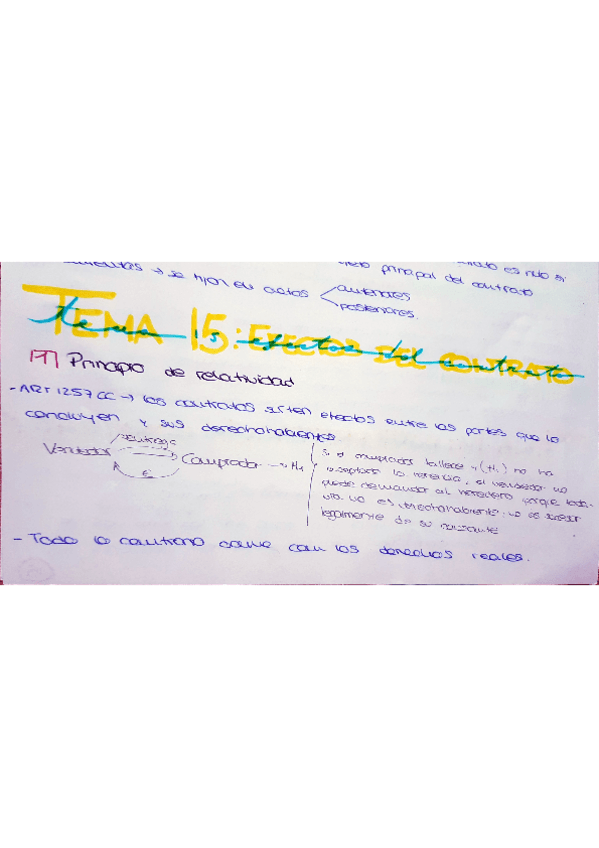 se fijan en actos
anteriores
posteriores.
objeto principal del contrato
es nulo si
TEMA 15: EFECTOS DEL CONTRATO
tema 15: efectos del contrato
Principio de relatividad
- ART 1257 CC → los contratos surten efectos entre las partes que lo
concluyen y sus derechohabientes
s.entrega
Vendedor
Comprador → H1
€
Si el comprador fallece y (H1) no ha
aceptado la herencia, el vendedor no
puede demandar al heredero porque toda-
vía no es derechohabiente: no es sucesor
legalmente de su causante
- Todo lo contrario ocurre con los derechos reales.